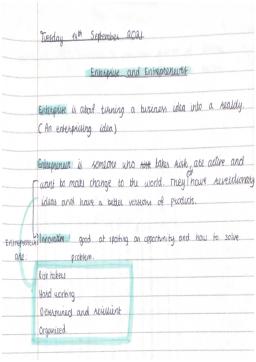 Tuesday 14th September 2021
Enterprise and Entrepreneurs
Enterprise is about turning a business idea into a reality.
(An enterprising idea)
Entrepreneur is someone who takes risk, are active and
want to make change to the world. They have revolutionary
ideas and have a better versions of products.
Innovative good at spotting an opportunity and how to solve
problem.
Entrepreneurs
are:
Risk takers
Hard working
Determined and resilient
Organised